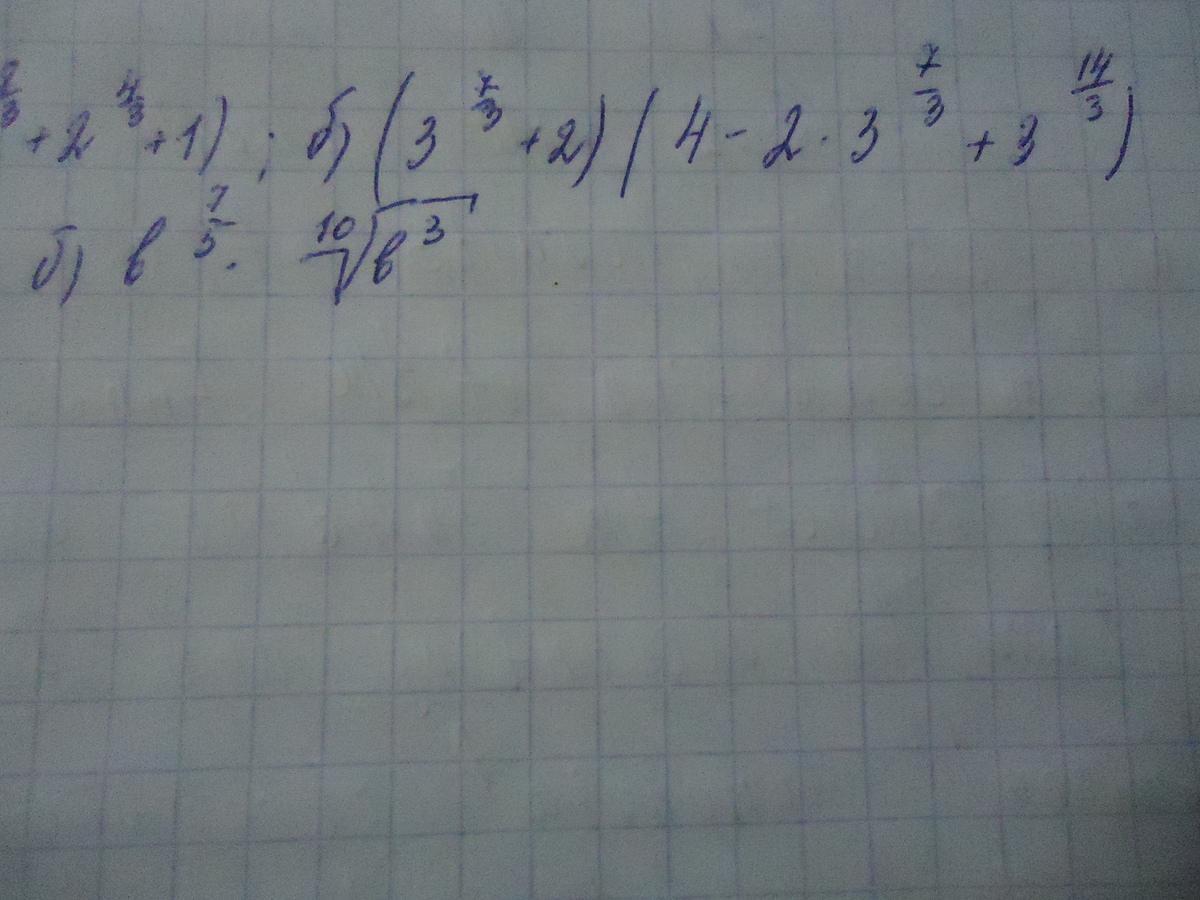 8/3 + 2^(4/3) + 1) ; б) (3^(7/3) + 2) (4 - 2 · 3^(7/3) + 3^(14/3))
б) в^(7/5) · ¹⁰√(в^3)